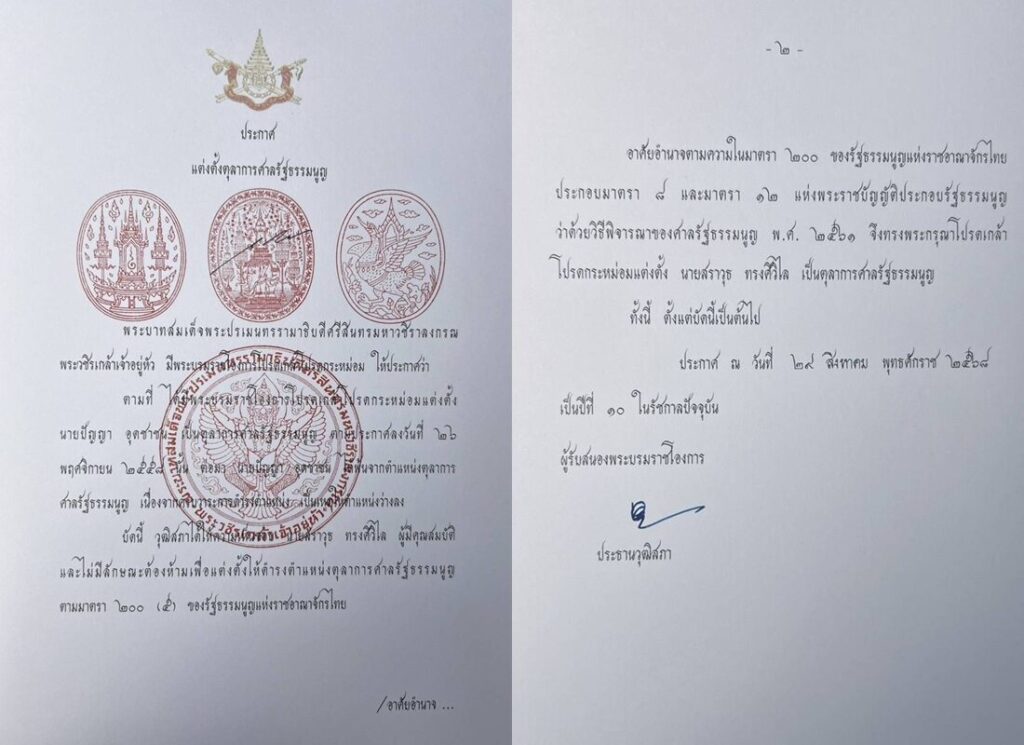 ประกาศ
แต่งตั้งตุลาการศาลรัฐธรรมนูญ
พระบาทสมเด็จพระปรเมนทรรามาธิบดีศรีสินทรมหาวชิราลงกรณ
พระวชิรเกล้าเจ้าอยู่หัว มีพระบรมราชโองการโปรดเกล้าโปรดกระหม่อม ให้ประกาศว่า
ตามที่ ได้มีพระบรมราชโองการโปรดเกล้าโปรดกระหม่อมแต่งตั้ง
นายปัญญา อุดชาชน เป็นตุลาการศาลรัฐธรรมนูญ ตามประกาศลงวันที่ ๒๖
พฤศจิกายน ๒๕๕๘ นั้น ต่อมา นายปัญญา อุดชาชน ได้พ้นจากตำแหน่งตุลาการ
ศาลรัฐธรรมนูญ เนื่องจากครบวาระการดำรงตำแหน่ง เป็นเหตุให้ตำแหน่งว่างลง
บัดนี้ วุฒิสภาได้ให้ความเห็นชอบ นายสราวุธ ทรงศิวิไล ผู้มีคุณสมบัติ
และไม่มีลักษณะต้องห้ามเพื่อแต่งตั้งให้ดำรงตำแหน่งตุลาการศาลรัฐธรรมนูญ
ตามมาตรา ๒๐๐ (๕) ของรัฐธรรมนูญแห่งราชอาณาจักรไทย
/อาศัยอำนาจ ...
- ๒ -
อาศัยอำนาจตามความในมาตรา ๒๐๐ ของรัฐธรรมนูญแห่งราชอาณาจักรไทย
ประกอบมาตรา ๘ และมาตรา ๑๒ แห่งพระราชบัญญัติประกอบรัฐธรรมนูญ
ว่าด้วยวิธีพิจารณาของศาลรัฐธรรมนูญ พ.ศ. ๒๕๖๑ จึงทรงพระกรุณาโปรดเกล้า
โปรดกระหม่อมแต่งตั้ง นายสราวุธ ทรงศิวิไล เป็นตุลาการศาลรัฐธรรมนูญ
ทั้งนี้ ตั้งแต่บัดนี้เป็นต้นไป
ประกาศ ณ วันที่ ๒๙ สิงหาคม พุทธศักราช ๒๕๖๘
เป็นปีที่ ๑๐ ในรัชกาลปัจจุบัน
ผู้รับสนองพระบรมราชโองการ
ประธานวุฒิสภา